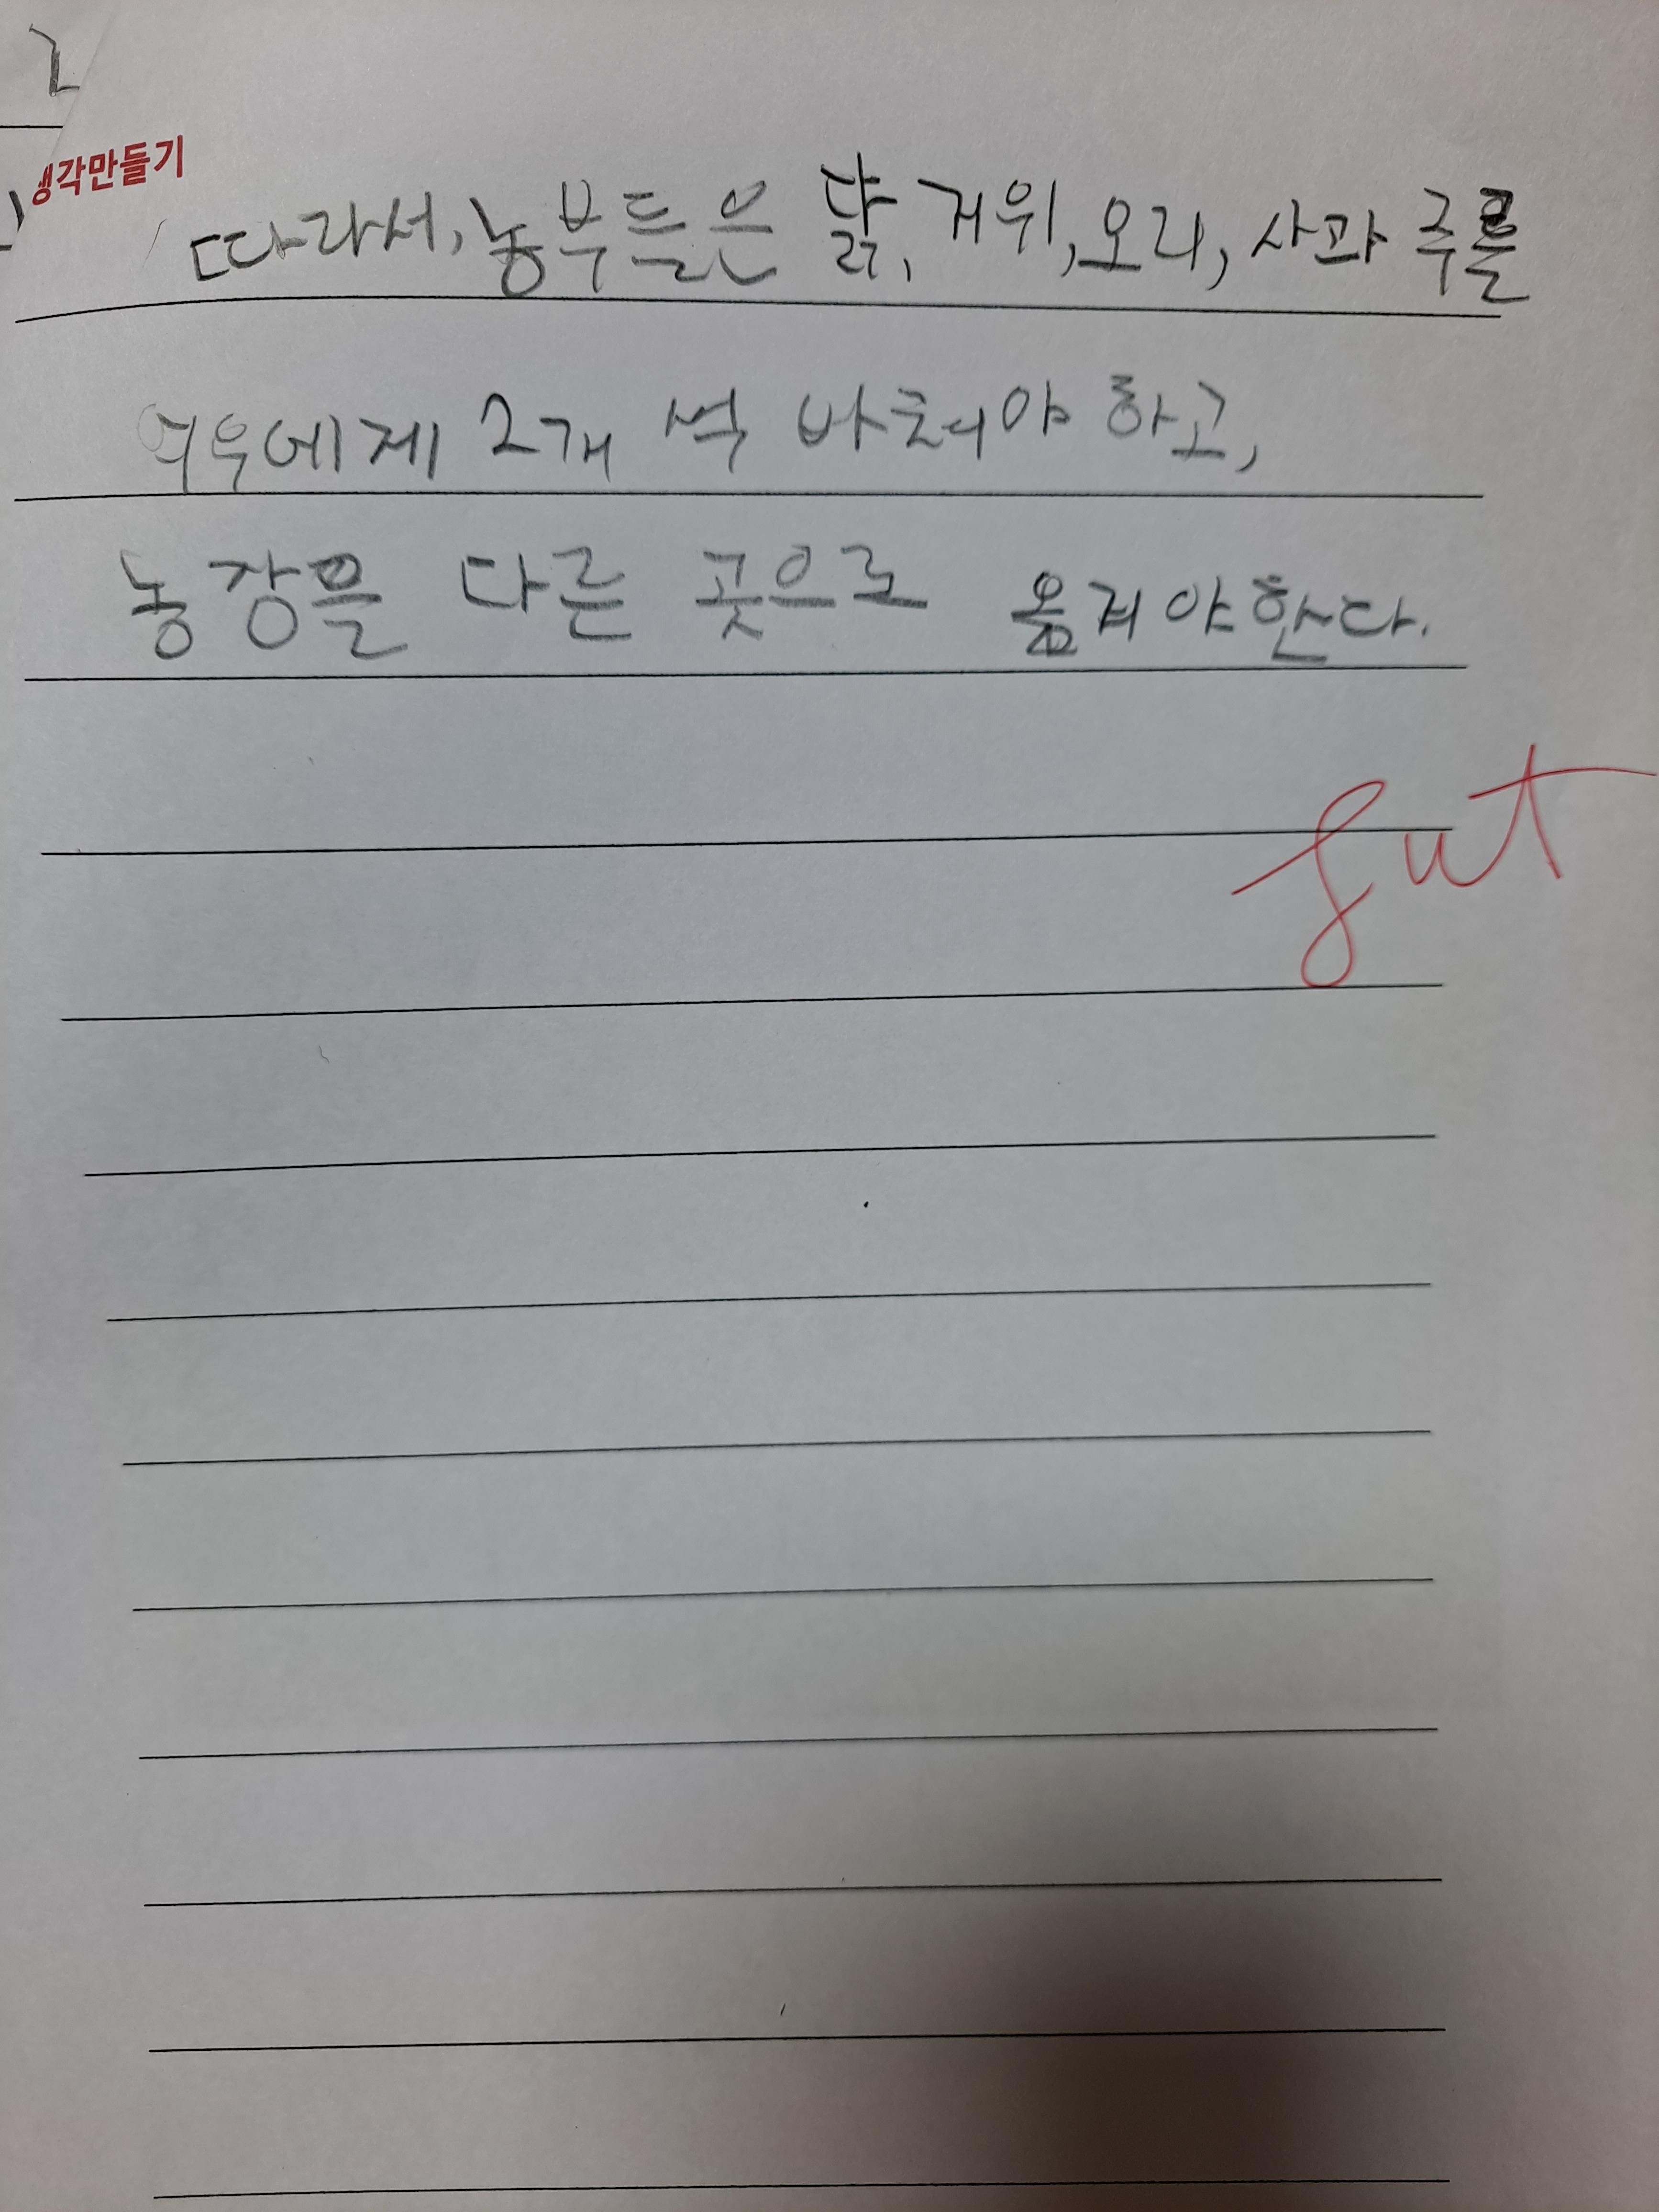 생각만들기
따라서, 농부들은 닭, 거위, 오리, 사과 주를
여우에게 2개 씩 바쳐야 하고,
농장을 다른 곳으로 옮겨야한다.
gut